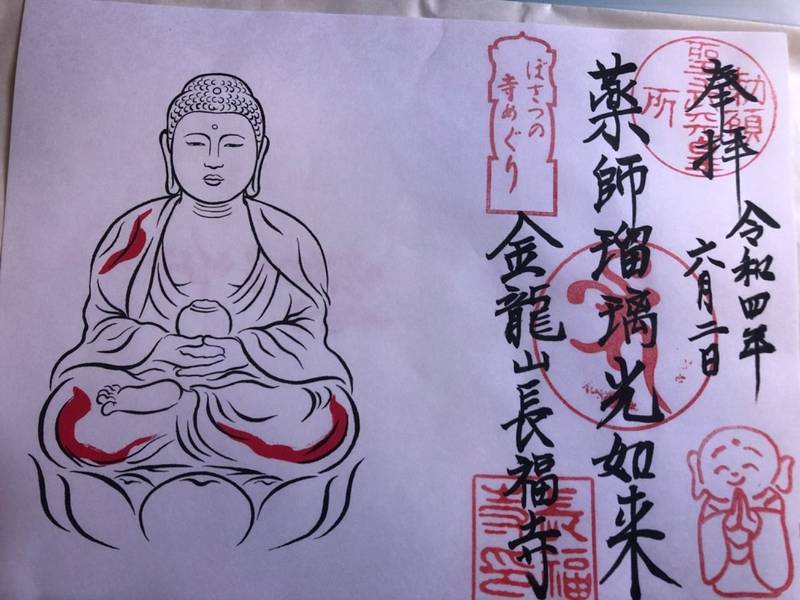 奉拝
令和四年
六月二日
勅願
所
薬師瑠璃光如来
ぼさつの
寺めぐり
金龍山長福寺
長福
寺印